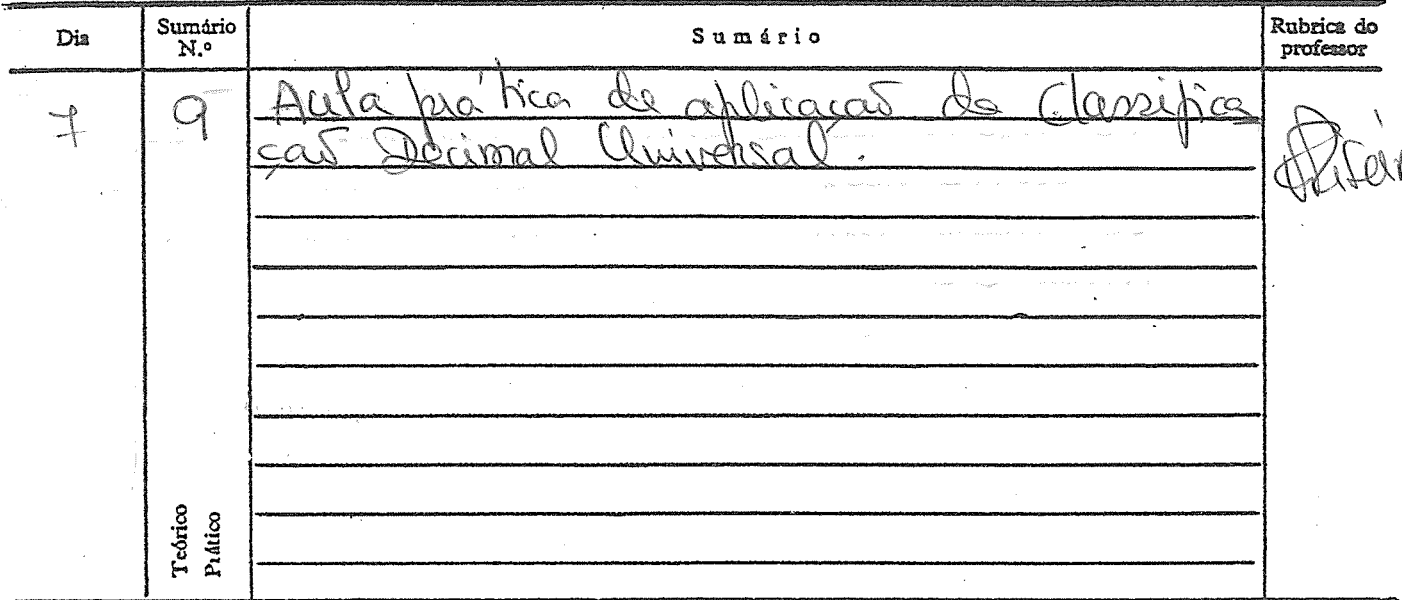 Dia
Sumário N.º
Sumário
Rubrica do professor
7
9
Aula prática de aplicação da Classifica
ção Decimal Universal.
Teórico
Prático